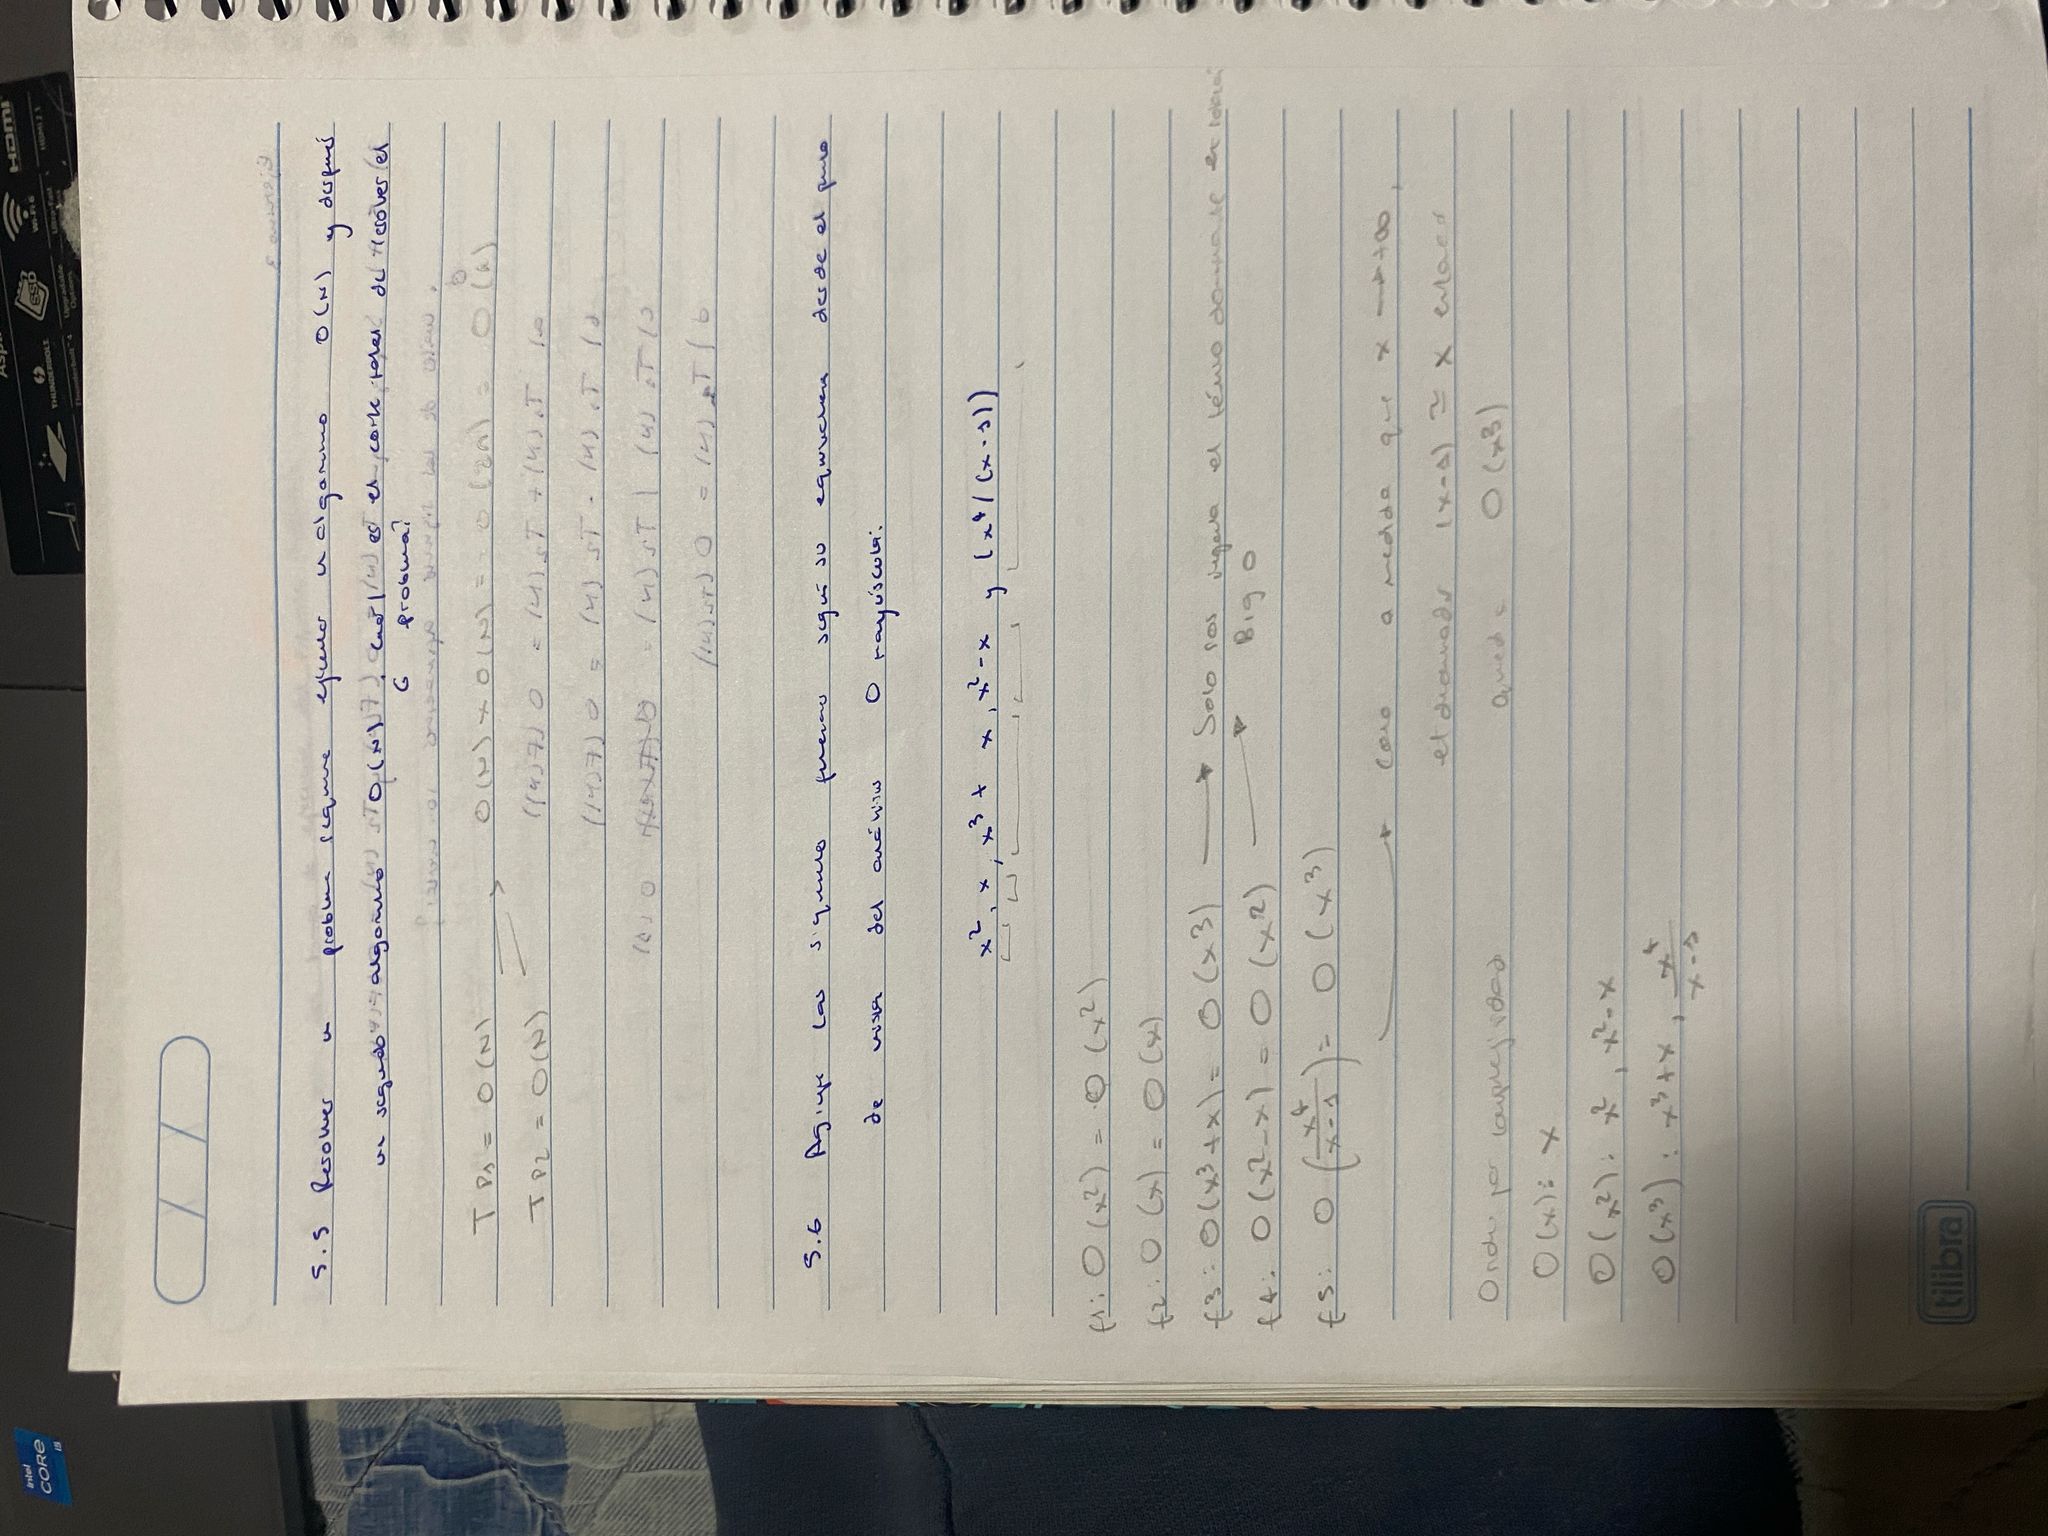 intel
CORE
i5
THUNDERBOLT
Thunderbolt™ 4
SSD
Upgradable
Options
Wi-Fi 6
Ultra-Fast
HDMI
HDMI 2.1
5.5 Resolver un problema requiere ejecutar un algoritmo O(N) y después
un segundo algoritmo O(N). Cuál es el coste total de resolver el
problema?
TP1 = O(N)
TP2 = O(N)
5.6 Agrupe las siguientes funciones según su equivalencia desde el punto
de vista del análisis O mayúscula:
x², x, x³ + x, x² - x y (x⁴/(x-1))
f1: O(x²) = O(x²)
f2: O(x) = O(x)
f3: O(x³+x) = O(x³) → Solo nos el término dominante en
Big O
f4: O(x²-x) = O(x²)
f5: O(x⁴/(x-1)) = O(x³)
como a medida que x → +∞,
el denominador (x-1) ≃ x entonces
queda O(x³)
Orden por complejidad
O(x): x
O(x²): x², x²-x
O(x³): x³+x, x⁴/(x-1)
tilibra